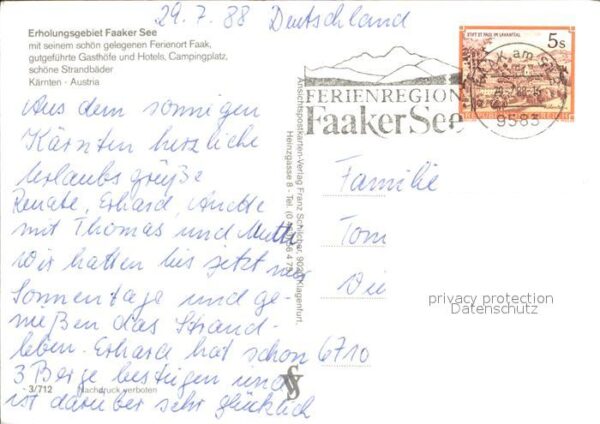 29.7.88 Deutschland
Erholungsgebiet Faaker See
mit seinem schön gelegenen Ferienort Faak,
gutgeführte Gasthöfe und Hotels, Campingplatz,
schöne Strandbäder
Kärnten · Austria
Aus dem sonnigen
Kärnten herzliche
Urlaubs grüße
Renate, Erhard, Anette
mit Thomas und Mutti
Wir hatten bis jetzt nur
Sonnentage und ge-
nießen das Strand-
leben. Erhard hat schon
3 Berge bestiegen und
ist darüber sehr glücklich
3/712 Nachdruck verboten
Ansichtspostkarten-Verlag Franz Schilcher, 9020 Klagenfurt,
Heinzgasse 8 - Tel.
FERIENREGION
Faaker See
STIFT ST. PAUL IM LAVANTTAL
5s
9583
Familie
Tom
Die
6710
privacy protection
Datenschutz